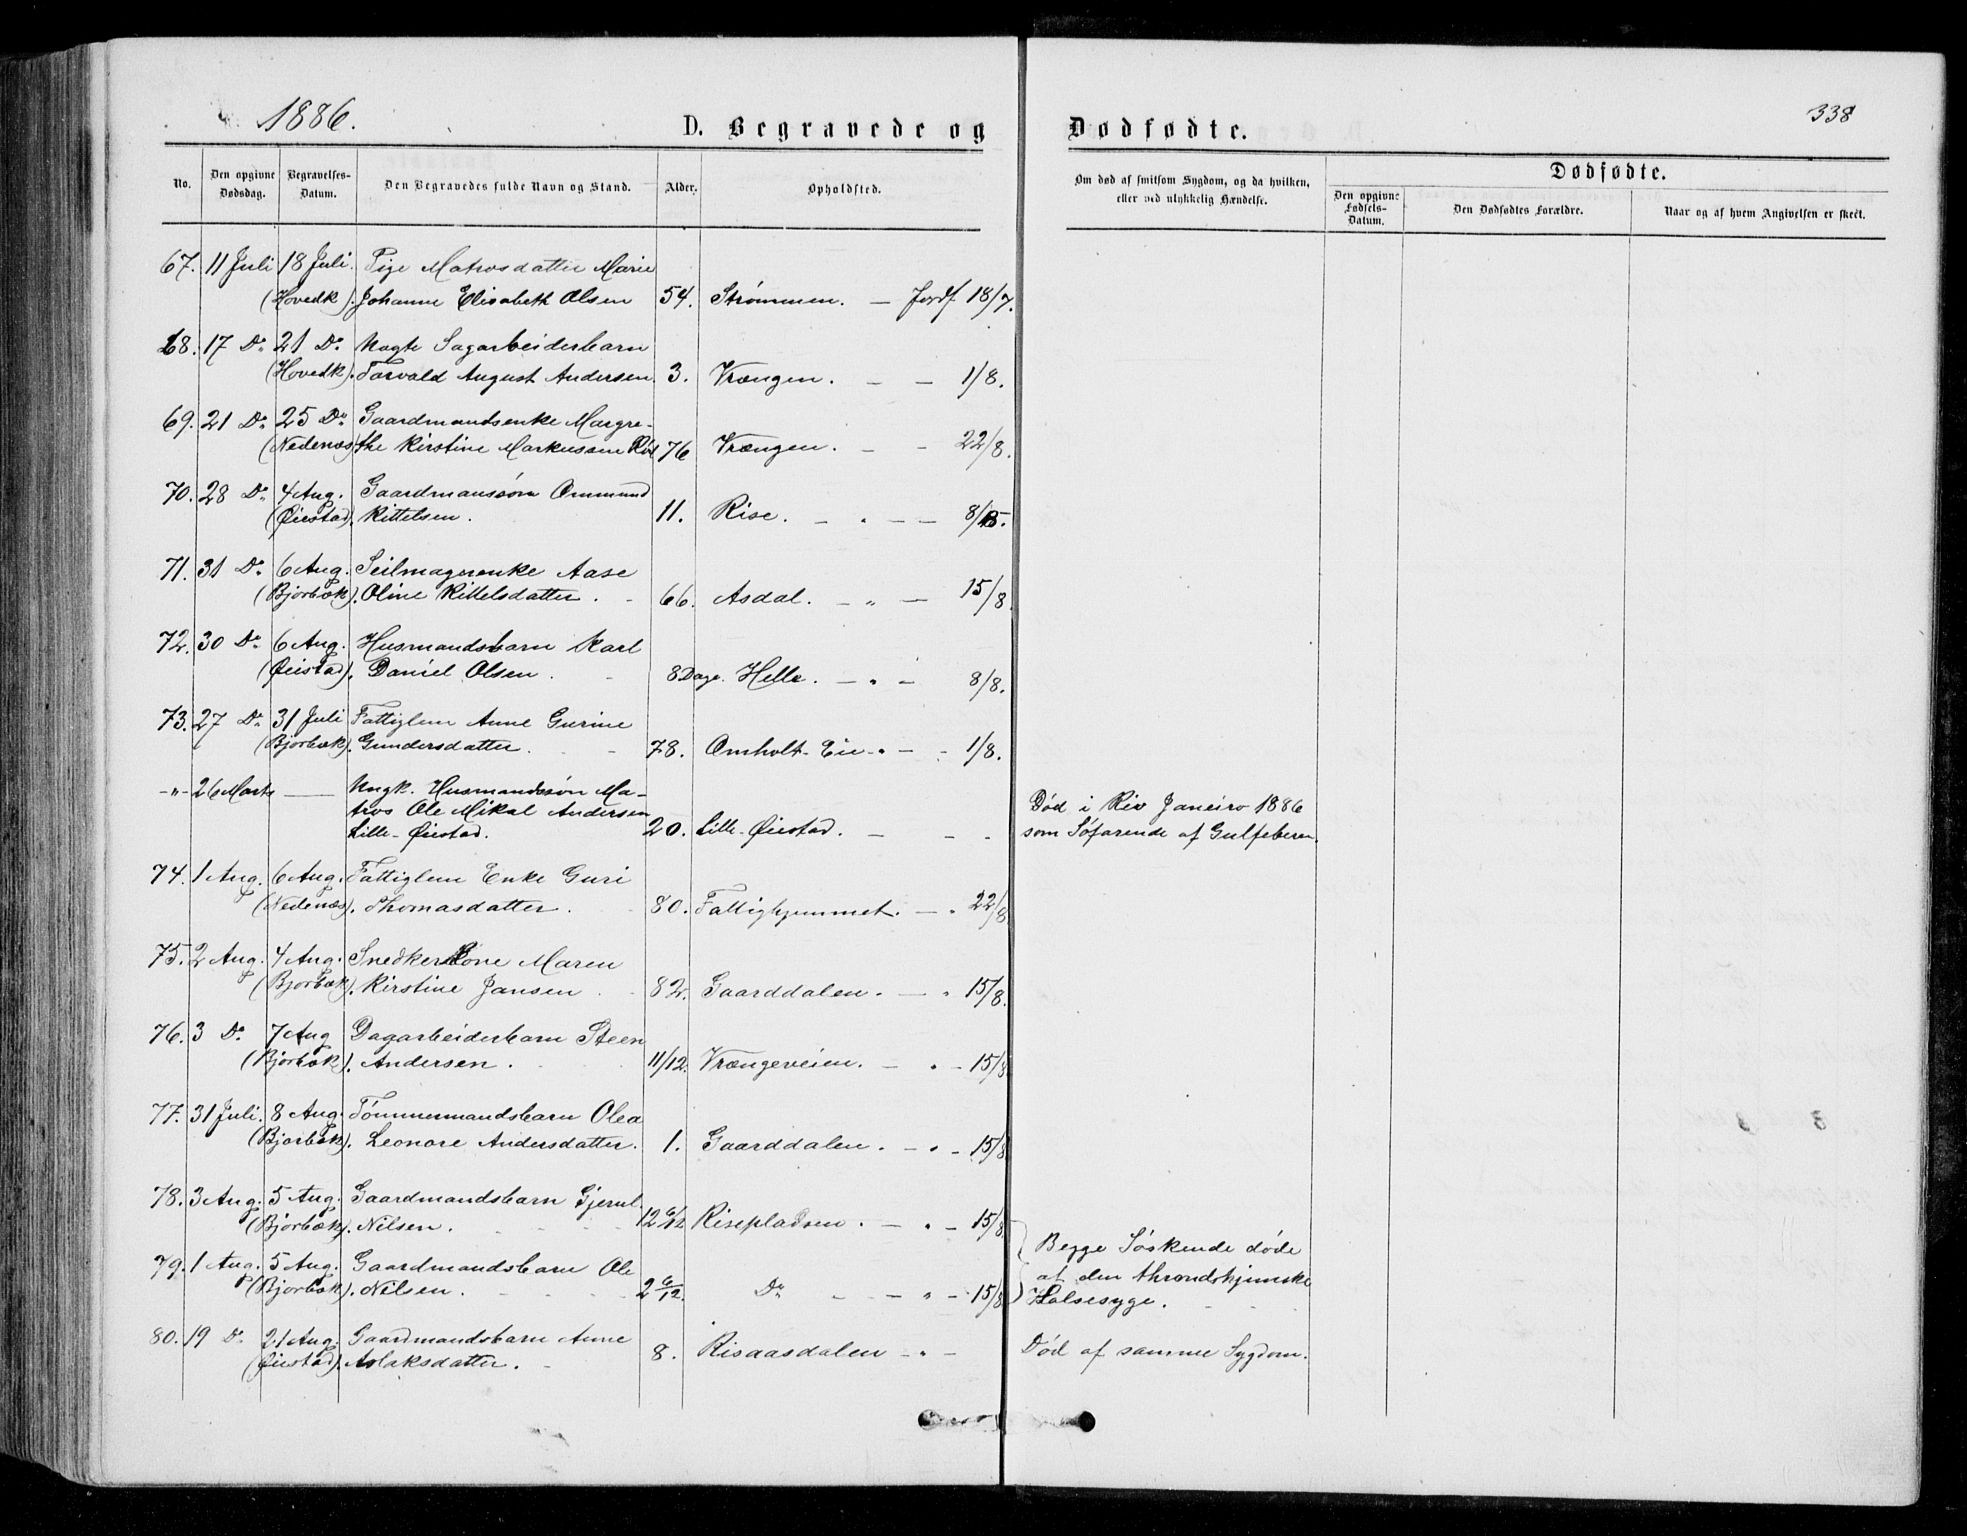 1886.
D. Begravede og Dødfødte.
338
No. Den opgivne Dødsdag. Begravelses-Datum. Den Begravedes fulde Navn og Stand. Alder. Opholdsted.
Om død af smitsom Sygdom, og da hvilken, eller ved ulykkelig Hændelse.
Dødfødte.
Den opgivne Fødsels-Datum. Den Dødfødtes Forældre. Naar og af hvem Angivelsen er skeet.
67. 11 Juli 18 Juli. Pige Matrosdatter Marie
(Hovedk). Johanne Elisabeth Olsen 54. Strømmen. — Jordf. 18/7.
68. 17 Do 21 Do Sagarbeiderbarn
(Hovedk). Torvald August Andersen. 3. Vrængen. — — 1/8.
69. 21 Do 25 Do Gaardmandsenke Margre-
(Nedenæs) the Kirstine Markussen 76 Vrængen. — - 22/8.
70. 28 Do 4 Aug. Gaardmanssøn Ommund
(Øiestad). Kittelsen. 11. Rise. — " — —
71. 31 Do 6 Aug. Seilmagerenke Aase
(Bjorbæk). Oline Kittelsdatter. 66. Asdal. — " — 15/8.
72. 30 Do 6 Aug. Husmandsbarn Karl
(Øiestad). Daniel Olsen. 8 Dage. Helle. — " — 8/8.
73. 27 Do 31 Juli Fattiglem Anne Gurine
(Bjorbæk). Gundersdatter. 78. Omholt-Eie - " — - 1/8.
-"- 26 Marts — Ungk. Husmandssøn Ma-
tros Ole Mikal Andersen
Lille-Øiestad. 20. Lille-Øiestad. — - -
Død i Rio Janeiro 1886
som Søfarende af Gulfeberen.
74. 1 Aug. 6 Aug. Fattiglem Enke Guri
(Nedenæs). Thomasdatter. 80. Fattighjemmet. — " 22/8
75. 2 Aug. 4 Aug. Snedkerkone Maren
(Bjorbæk). Kirstine Jansen. 82. Gaarddalen. — " 15/8.
76. 3 Do 7 Aug Dagarbeiderbarn Steen
(Bjorbæk). Andersen. 11/12. Vrængeveien. — " - 15/8
77. 31 Juli. 8 Aug. Tømmermandsbarn Olea
(Bjorbæk). Leonore Andersdatter. 1. Gaarddalen. — " - 15/8
78. 3 Aug. 5 Aug. Gaardmandsbarn
(Bjorbæk). Nilsen. 12 6/12 Risepladsen. — " - 15/8
79. 1 Aug. 5 Aug. Gaardmandsbarn Ole
(Bjorbæk). Nilsen. 2 6/12. Do - — " - 15/8
Begge Søskende døde
af den throndhjemske
Halsesyge.
80. 19 Do 21 Aug. Gaardmandsbarn Anne
(Øiestad). Aslaksdatter. 8. Risaasdalen — " —
Død af samme Sygdom.